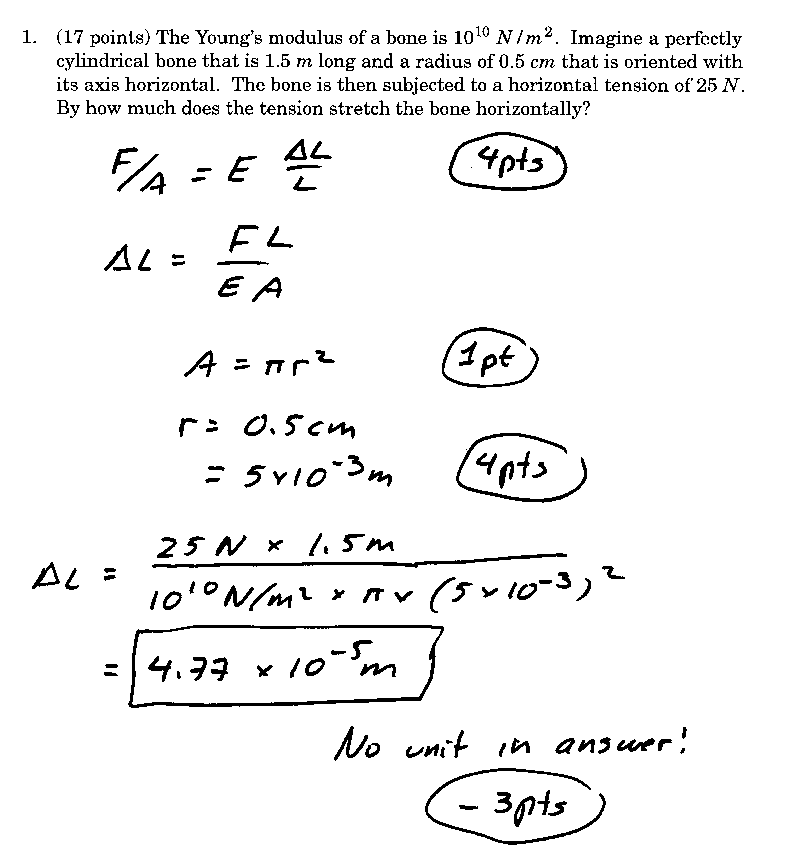 1. (17 points) The Young's modulus of a bone is 10¹⁰ N/m². Imagine a perfectly
cylindrical bone that is 1.5 m long and a radius of 0.5 cm that is oriented with
its axis horizontal. The bone is then subjected to a horizontal tension of 25 N.
By how much does the tension stretch the bone horizontally?
F/A = E ΔL/L (4pts)
ΔL = FL/EA
A = πr² (1pt)
r = 0.5cm
= 5×10⁻³m (4pts)
ΔL = 25 N × 1.5m / 10¹⁰ N/m² × π × (5×10⁻³)²
= 4.77 × 10⁻⁵m
No unit in answer!
- 3pts